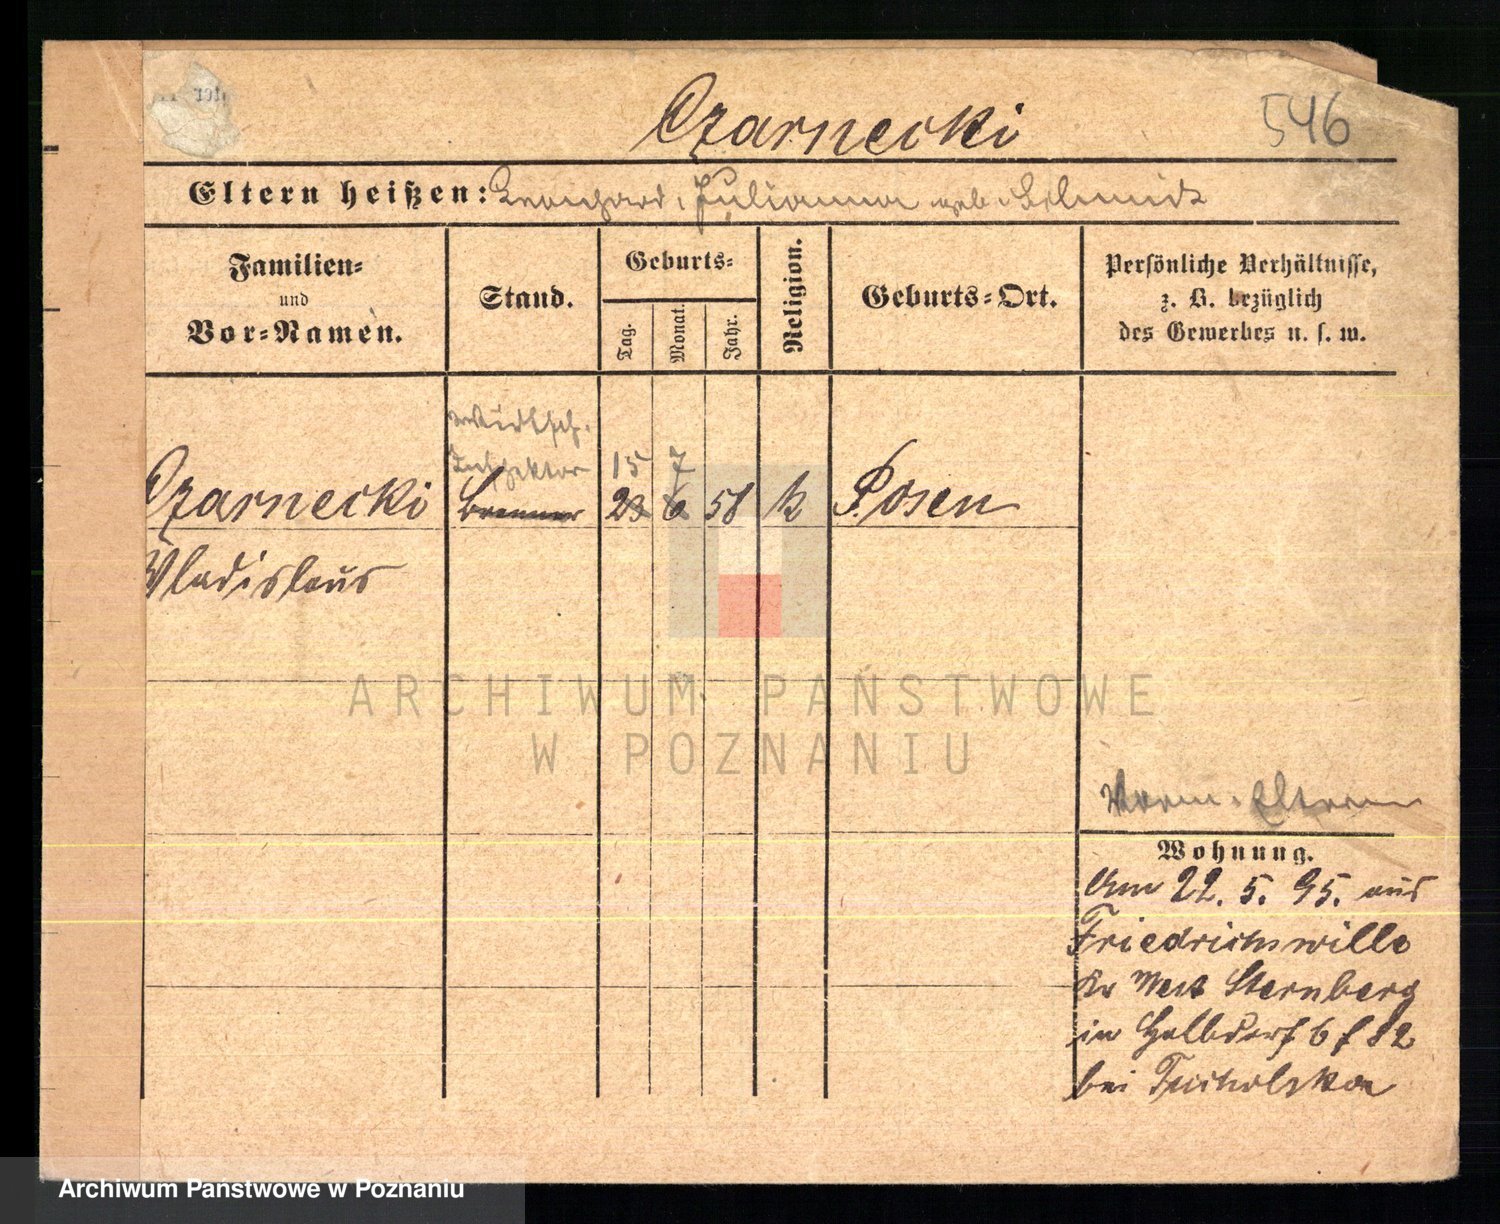 Czarnecki
546
Eltern heißen: Leonhard, Julianna geb. Schmidt
Familien=
und
Vor=Namen.
Stand.
Geburts=
Tag.
Monat.
Jahr.
Religion.
Geburts=Ort.
Persönliche Verhältnisse,
z. B. bezüglich
des Gewerbes u. s. w.
Wirtsch.
Inspektor
15 7
Czarnecki Brenner 23 6 58 k Posen
Wladislaus
Eltern
Wohnung.
Am 22. 5. 95. aus
Friedrichswille
Kr West Sternberg
in Halbdorf 6 f 82
bei Tucholska
ARCHIWUM PAŃSTWOWE
W POZNANIU
Archiwum Państwowe w Poznaniu